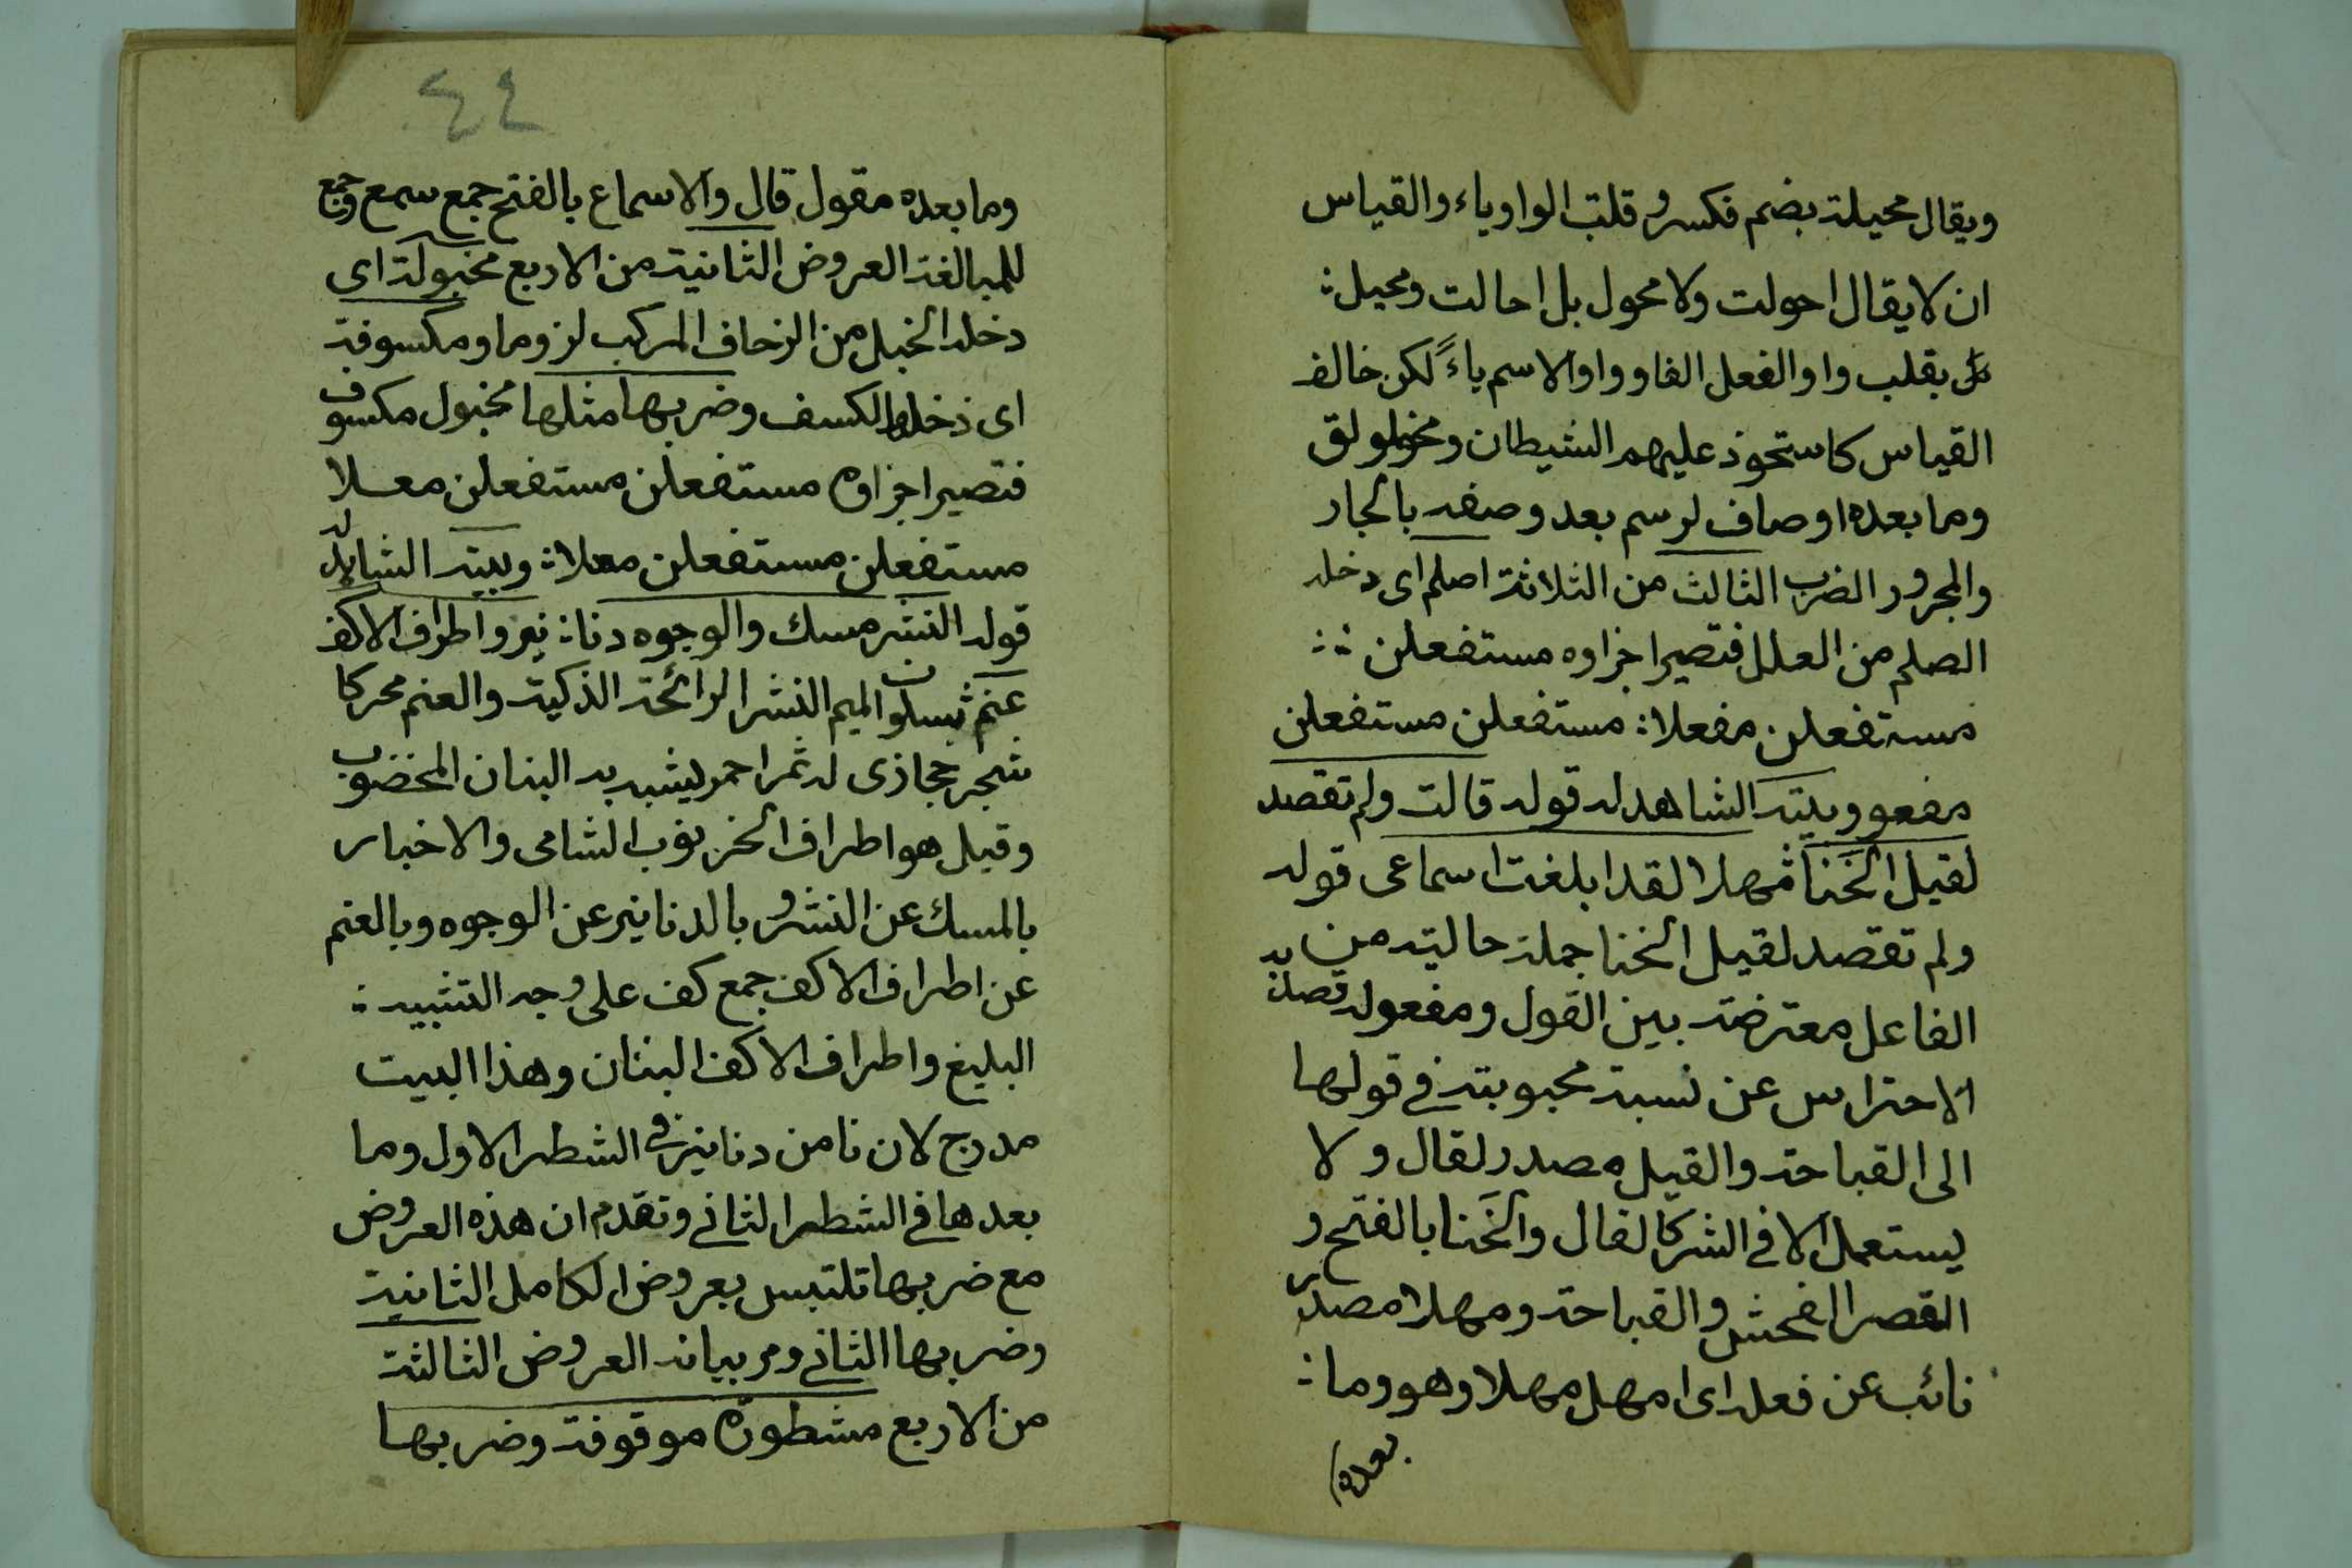 ويقال محيلة بضم فكسر وقلت الواو ياء والقياس
ان لا يقال احولت ولا محول بل احالت ومحيل :
بقلب واو الفعل الفا وواو الاسم ياءً لكن خالف
القياس كاستحوذ عليهم الشيطان ومخلولق
وما بعده اوصاف لرسم بعد وصفه بالجار
والمجرور الضرب الثالث من الثلاثة اصلم اى دخله
الصلم من العلل فتصير اجزاوه مستفعلن ::
مستفعلن مفعلا : مستفعلن مستفعلن
مفعو وبيته الشاهد له قوله قالت ولم تقصد
لقيل الخَنَا مهلا لقد ابلغت اسماعى قوله
ولم تقصد لقيل الخنا جملة حالية من
الفاعل معترضة بين القول ومفعوله قصد به
الاحتراس عن نسبة محبوبته في قولها
الى القباحة والقيل مصدر لقال ولا
يستعمل الا في الشر كالقال والخَنا بالفتح و
القصر الفحش والقباحة ومهلا مصدر
نائب عن فعله اى امهل مهلا وهو وما :
بعده
٤٤
وما بعده مقول قال والاسماع بالفتح جمع سمع وجمع
للمبالغة العروض الثانية من الاربع مخبولة اى
دخله الخبل من الزحاف المركب لزوما ومكسوفة
اى دخلها الكسف وضربها مثلها مخبول مكسوف
فتصير اجزاوه مستفعلن مستفعلن معلا
مستفعلن مستفعلن معلا : وبيته الشاهد له
قوله النشر مسك والوجوه دنا : نير واطراف الاكف
عنم بسكون الميم النشر الرائحة الذكية والعنم محركا
شجر حجازى له ثمر احمر يشبه به البنان المخضوب
وقيل هو اطراف الخرنوب الشامى والاخبار
بالمسك عن النشر وبالدنانير عن الوجوه وبالعنم
عن اطراف الاكف جمع كف على وجه التشبيه :
البليغ واطراف الاكف البنان وهذا البيت
مدرج لان نا من دنانير في الشطر الاول وما
بعدها في الشطر الثاني وتقدم ان هذه العروض
مع ضربها تلتبس بعروض الكامل الثانية
وضربها الثاني ومر بيانه العروض الثالثة
من الاربع مشطورة موقوفة وضربها